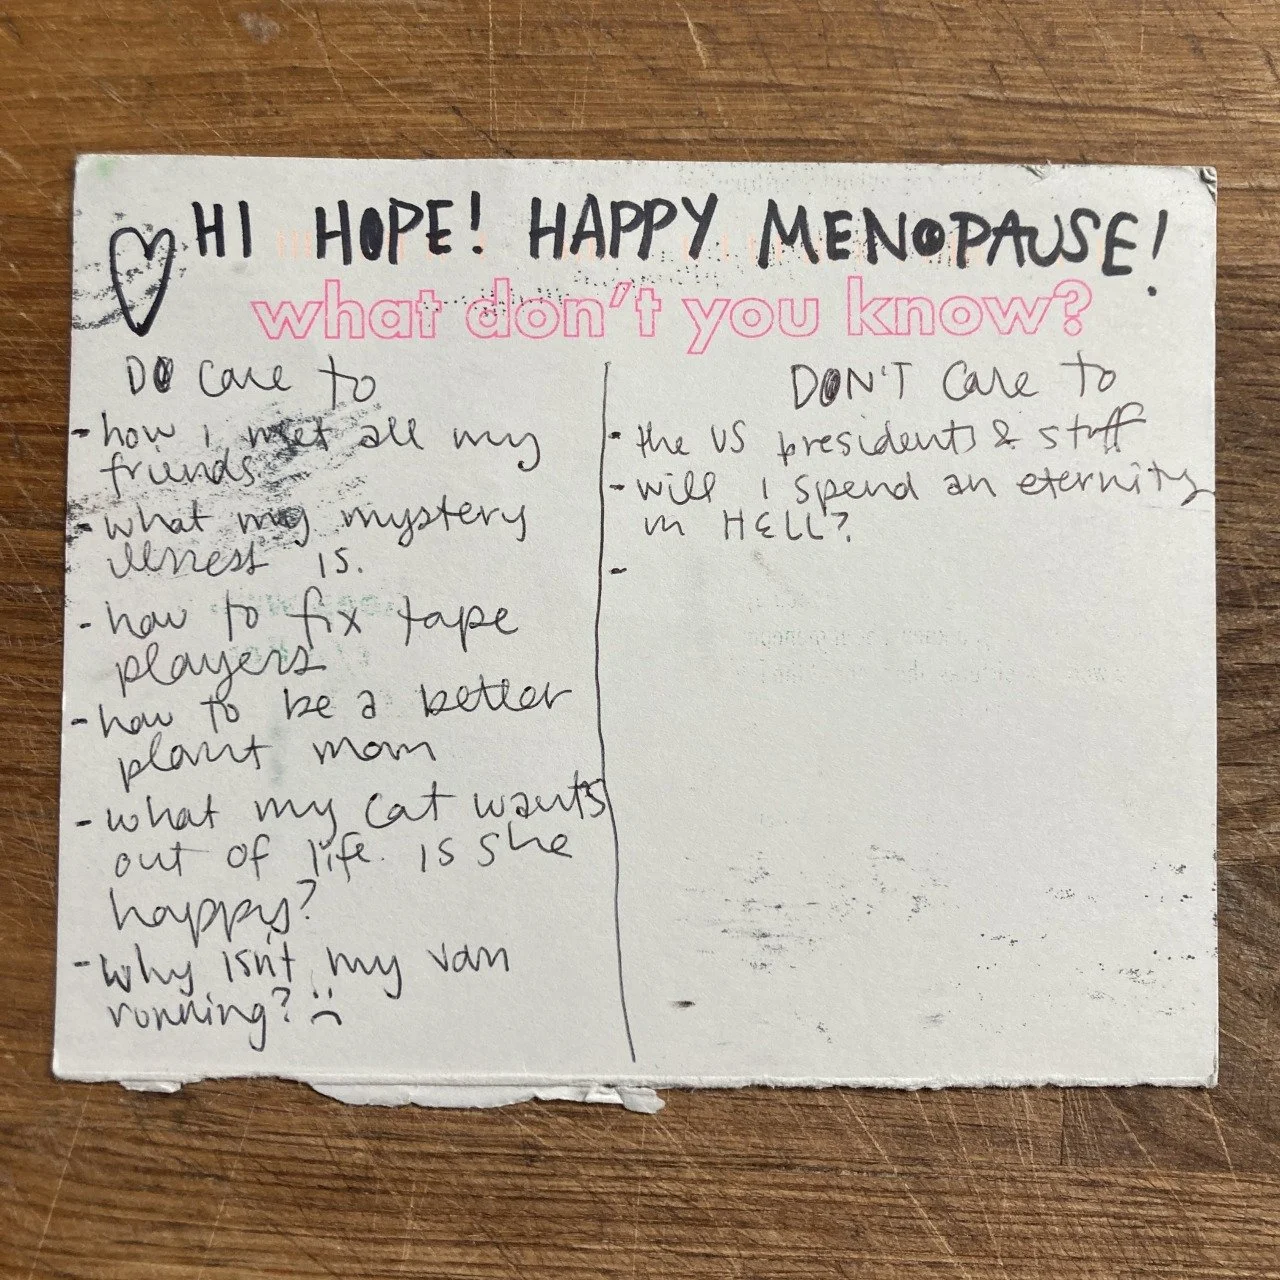 HI HOPE! HAPPY MENOPAUSE!
what don't you know?
DO care to
- how i met all my
friends
- what my mystery
illness is.
- how to fix tape
players
- how to be a better
plant mom
- what my cat wants
out of life. is she
happy?
- why isn't my van
running? :(
DON'T care to
- the US presidents & stuff
- will i spend an eternity
in HELL?
-